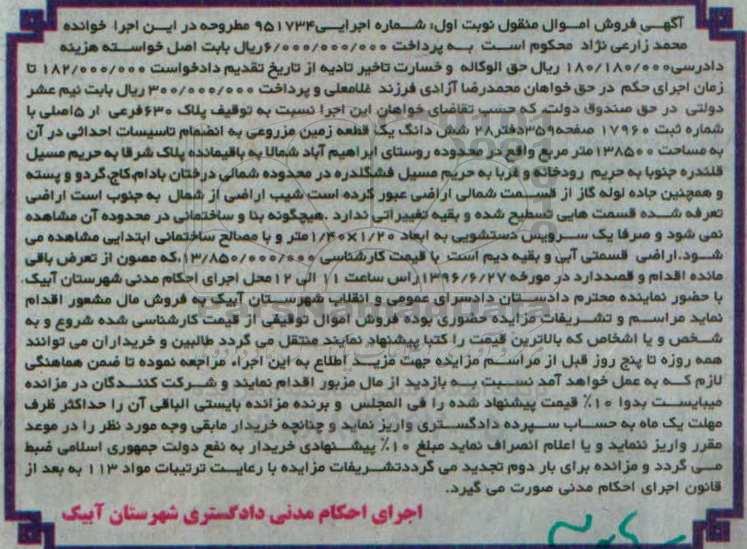 آگهی فروش اموال منقول نوبت اول: شماره اجرایی ۹۵۱۷۳۴ مطروحه در این اجرا خوانده
محمد زارعی نژاد محکوم است به پرداخت ۶/۰۰۰/۰۰۰/۰۰۰ریال بابت اصل خواسته هزینه
دادرسی ۱۸۰/۱۸۰/۰۰۰ ریال حق الوکاله و خسارت تاخیر تادیه از تاریخ تقدیم دادخواست ۱۸۲/۰۰۰/۰۰۰ تا
زمان اجرای حکم در حق خواهان محمدرضا آزادی فرزند غلامعلی و پرداخت ۳۰۰/۰۰۰/۰۰۰ ریال بابت نیم عشر
دولتی در حق صندوق دولت، که حسب تقاضای خواهان این اجرا نسبت به توقیف پلاک ۶۳۰فرعی از ۵اصلی با
شماره ثبت ۱۷۹۶۰ صفحه۳۵۹دفتر۲۸ شش دانگ یک قطعه زمین مزروعی به انضمام تاسیسات احداثی در آن
به مساحت ۱۳۸۵۰۰متر مربع واقع در محدوده روستای ابراهیم آباد شمالا به باقیمانده پلاک شرقا به حریم مسیل
قلندره جنوبا به حریم رودخانه و غربا به حریم مسیل فشگلدره در محدوده شمالی درختان بادام،کاج،گردو و پسته
و همچنین جاده لوله گاز از قسمت شمالی اراضی عبور کرده است شیب اراضی از شمال به جنوب است اراضی
تعرفه شده قسمت هایی تسطیح شده و بقیه تغییراتی ندارد .هیچگونه بنا و ساختمانی در محدوده آن مشاهده
نمی شود و صرفا یک سرویس دستشویی به ابعاد ۱/۲۰×۱/۴۰متر و با مصالح ساختمانی ابتدایی مشاهده می
شود.اراضی قسمتی آبی و بقیه دیم است با قیمت کارشناسی ۱۳/۸۵۰/۰۰۰/۰۰۰،که مصون از تعرض باقی
مانده اقدام و قصددارد در مورخه ۱۳۹۶/۶/۲۷راس ساعت ۱۱ الی ۱۲محل اجرای احکام مدنی شهرستان آبیک
با حضور نماینده محترم دادستان دادسرای عمومی و انقلاب شهرستان آبیک به فروش مال مشعور اقدام
نماید مراسم و تشریفات مزایده حضوری بوده فروش اموال توقیفی از قیمت کارشناسی شده شروع و به
شخص و یا اشخاص که بالاترین قیمت را کتبا پیشنهاد نمایند منتقل می گردد طالبین و خریداران می توانند
همه روزه تا پنج روز قبل از مراسم مزایده جهت مزید اطلاع به این اجراء مراجعه نموده تا ضمن هماهنگی
لازم که به عمل خواهد آمد نسبت به بازدید از مال مزبور اقدام نمایند و شرکت کنندگان در مزانده
میبایست بدوا ۱۰٪ قیمت پیشنهاد شده را فی المجلس و برنده مزانده بایستی الباقی آن را حداکثر ظرف
مهلت یک ماه به حساب سپرده دادگستری واریز نماید و چنانچه خریدار مابقی وجه مورد نظر را در موعد
مقرر واریز ننماید و یا اعلام انصراف نماید مبلغ ۱۰٪ پیشنهادی خریدار به نفع دولت جمهوری اسلامی ضبط
می گردد و مزانده برای بار دوم تجدید می گرددتشریفات مزایده با رعایت ترتیبات مواد ۱۱۳ به بعد از
قانون اجرای احکام مدنی صورت می گیرد.
اجرای احکام مدنی دادگستری شهرستان آبیک